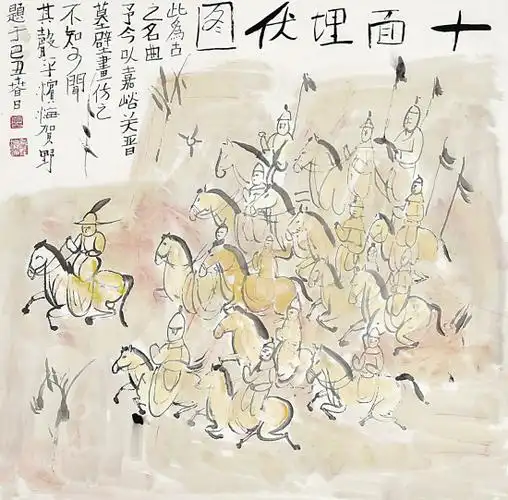 十面埋伏图
此為古
之名曲
予今以嘉峪关晋
墓壁畫仿之
不知可聞
其聲乎濱海賀野
題于己丑春日